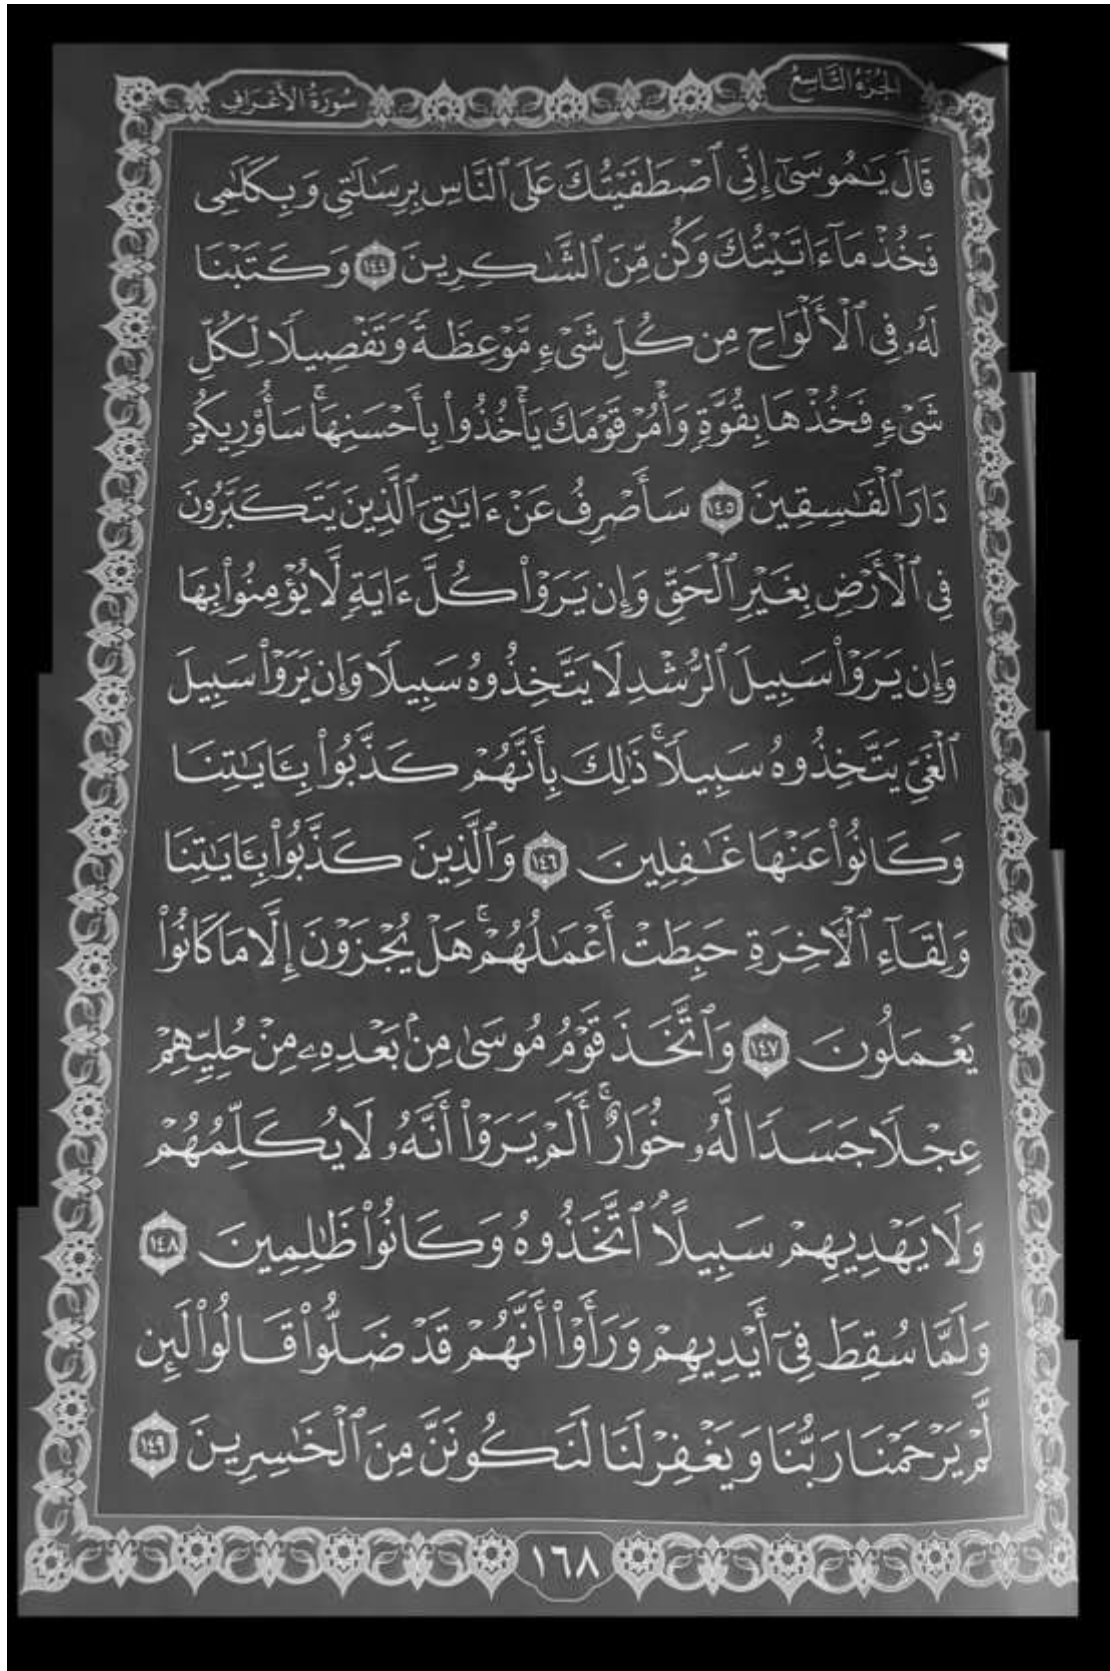 الجُزْءُ التَّاسِعُ
سُورَةُ الأَعْرَافِ
قَالَ يَٰمُوسَىٰٓ إِنِّي ٱصْطَفَيْتُكَ عَلَى ٱلنَّاسِ بِرِسَٰلَٰتِي وَبِكَلَٰمِي
فَخُذْ مَآ ءَاتَيْتُكَ وَكُن مِّنَ ٱلشَّٰكِرِينَ ١٤٤ وَكَتَبْنَا
لَهُۥ فِي ٱلْأَلْوَاحِ مِن كُلِّ شَيْءٍ مَّوْعِظَةً وَتَفْصِيلًا لِّكُلِّ
شَيْءٍ فَخُذْهَا بِقُوَّةٍ وَأْمُرْ قَوْمَكَ يَأْخُذُوا۟ بِأَحْسَنِهَا ۚ سَأُو۟رِيكُمْ
دَارَ ٱلْفَٰسِقِينَ ١٤٥ سَأَصْرِفُ عَنْ ءَايَٰتِيَ ٱلَّذِينَ يَتَكَبَّرُونَ
فِي ٱلْأَرْضِ بِغَيْرِ ٱلْحَقِّ وَإِن يَرَوْا۟ كُلَّ ءَايَةٍ لَّا يُؤْمِنُوا۟ بِهَا
وَإِن يَرَوْا۟ سَبِيلَ ٱلرُّشْدِ لَا يَتَّخِذُوهُ سَبِيلًا وَإِن يَرَوْا۟ سَبِيلَ
ٱلْغَيِّ يَتَّخِذُوهُ سَبِيلًا ۚ ذَٰلِكَ بِأَنَّهُمْ كَذَّبُوا۟ بِـَٔايَٰتِنَا
وَكَانُوا۟ عَنْهَا غَٰفِلِينَ ١٤٦ وَٱلَّذِينَ كَذَّبُوا۟ بِـَٔايَٰتِنَا
وَلِقَآءِ ٱلْـَٔاخِرَةِ حَبِطَتْ أَعْمَٰلُهُمْ ۚ هَلْ يُجْزَوْنَ إِلَّا مَا كَانُوا۟
يَعْمَلُونَ ١٤٧ وَٱتَّخَذَ قَوْمُ مُوسَىٰ مِنۢ بَعْدِهِۦ مِنْ حُلِيِّهِمْ
عِجْلًا جَسَدًا لَّهُۥ خُوَارٌ ۚ أَلَمْ يَرَوْا۟ أَنَّهُۥ لَا يُكَلِّمُهُمْ
وَلَا يَهْدِيهِمْ سَبِيلًا ۘ ٱتَّخَذُوهُ وَكَانُوا۟ ظَٰلِمِينَ ١٤٨
وَلَمَّا سُقِطَ فِىٓ أَيْدِيهِمْ وَرَأَوْا۟ أَنَّهُمْ قَدْ ضَلُّوا۟ قَالُوا۟ لَئِن
لَّمْ يَرْحَمْنَا رَبُّنَا وَيَغْفِرْ لَنَا لَنَكُونَنَّ مِنَ ٱلْخَٰسِرِينَ ١٤٩
١٦٨